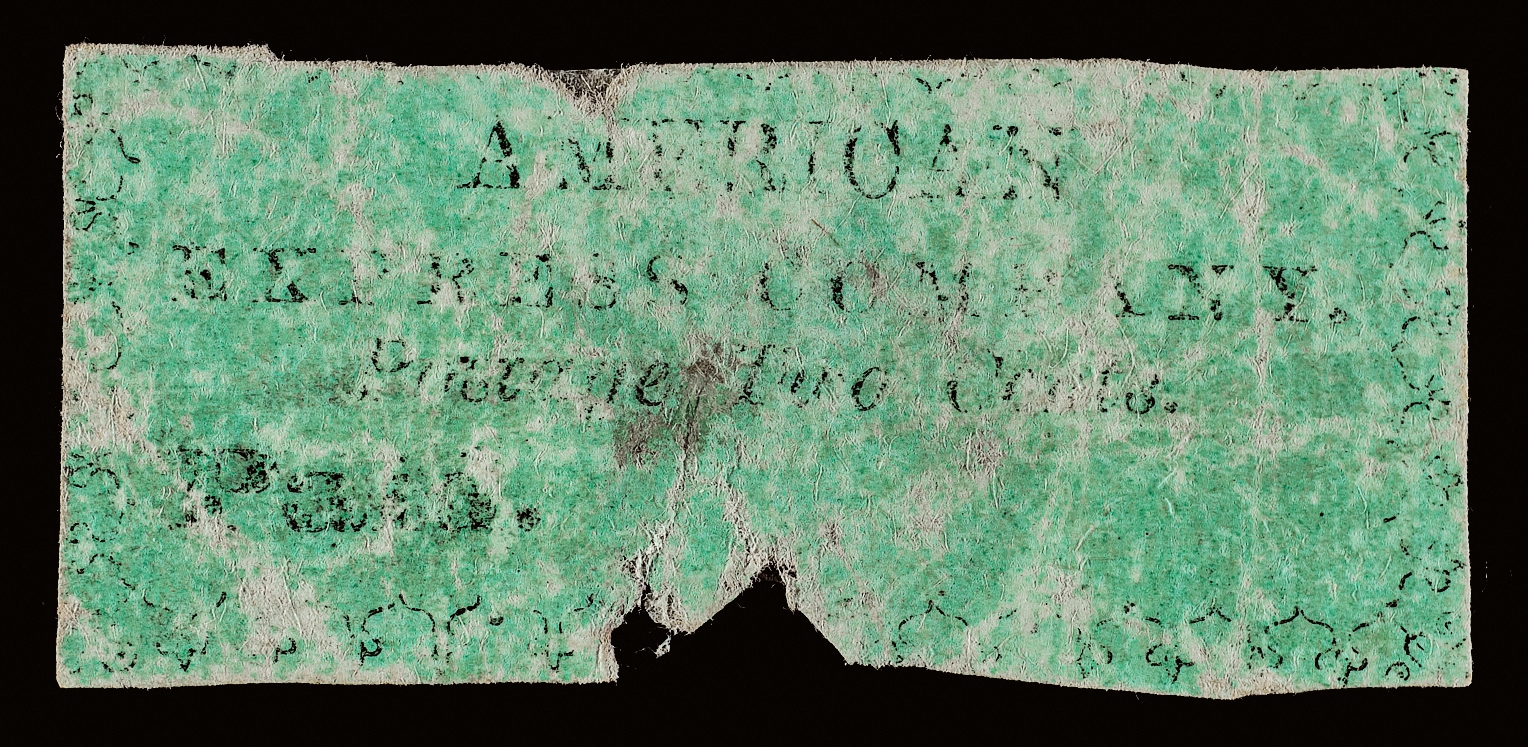 AMERICAN
EXPRESS COMPANY.
Postage Two Cents.
Paid.